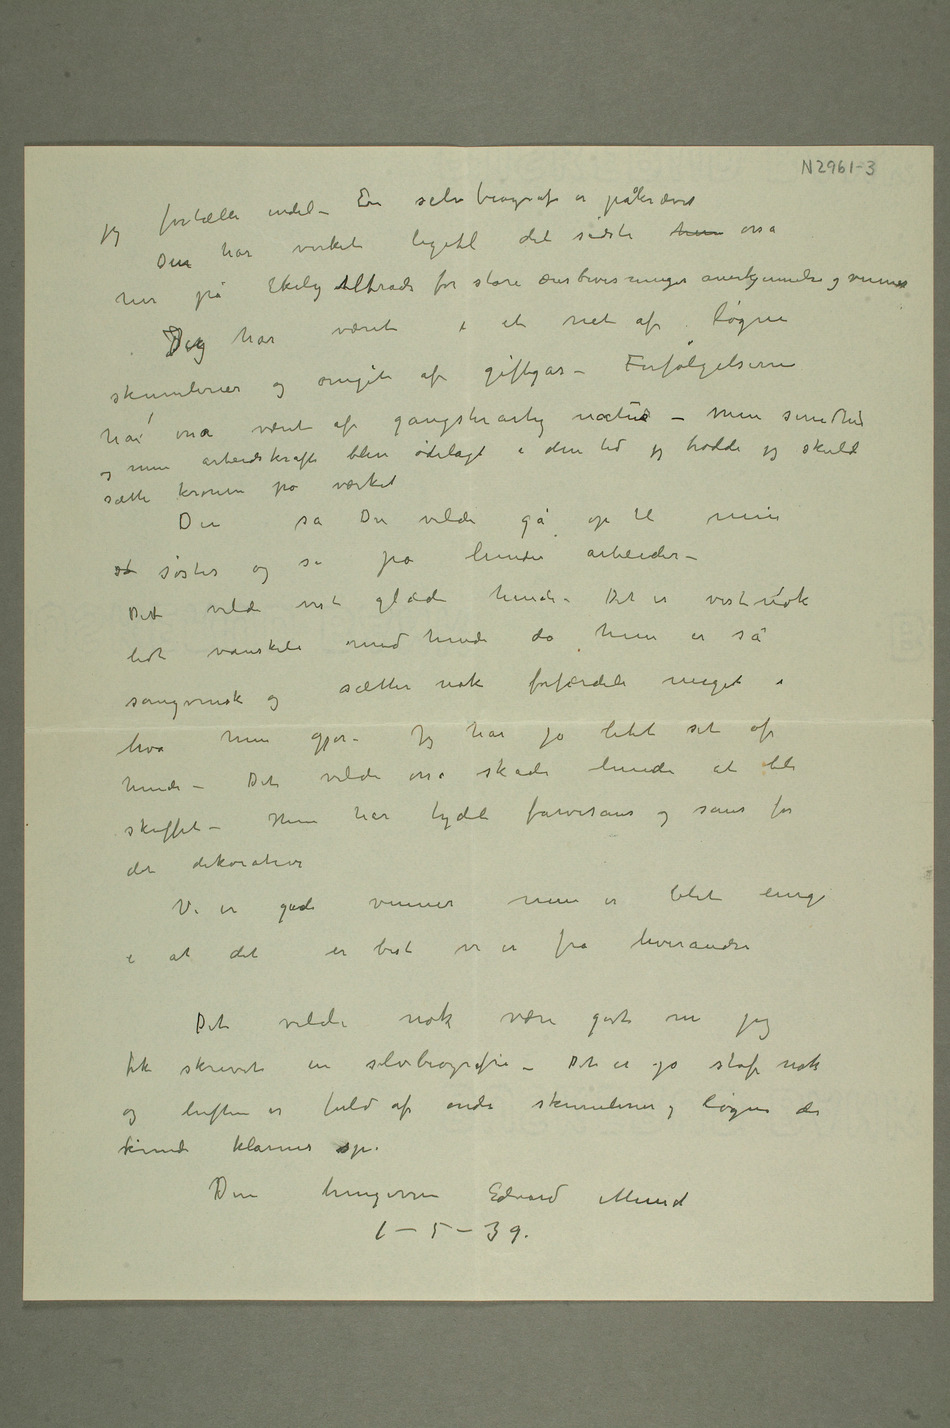 N2961-3
jeg fortælle endel – En selvbiografi er påkrævet
Den har virket ligetil det sidste her osså
her på Ekely tiltrods for store æresbevisninger anerkjennelse og venner
Jeg har været i et net af løgne
skumlerier og omgit af giftgas – Forfølgelserne
har osså været af gangsterartig natur – min sundhed
og min arbeidskraft blev ødelagt i den tid jeg trodde jeg skulde
sætte kronen på værket
Du sa Du vilde gå op til min
søster og se på hendes arbeider –
Det vilde vist glæde hende – Det er vist nok
lidt vanskeli med hende da hun er så
sangvinsk og sætter nok forfærdeli meget i
hva hun gjør – Jeg har jo litet set af
hende – Det vilde osså skade hende at bli
skuffet – Hun har tydeli farvesans og sans for
det dekorative
Vi er gode venner men er blet enige
i at det er best vi er fra hverandre
Det vilde nok være godt om jeg
fik skrevet en selvbiografi – Det er jo stof nok
og luften er fuld af onde skumlerier og løgne der
kunde klarnes op.
Din hengivne Edvard Munch
1 – 5 – 39.